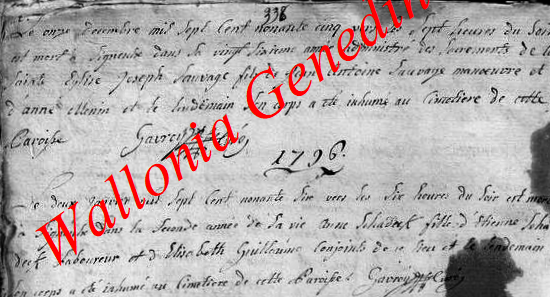 338
Le onze Decembre mil sept Cent nonante cinq vers les sept heures du Soir
est mort a dans la vingt sixieme année administré des sacrements de la
sainte Eglise Joseph Sauvage fils de Jean Antoine Sauvage manœuvre et
d'anne et le lendemain son corps a été inhumé au Cimetière de cette
Paroisse Gavroy Curé
1796.
Le deux janvier mil sept Cent nonante six vers les six heures du Soir est
a dans la seconde année de sa vie Anne Schadeck fille d'Etienne Scha
deck laboureur et d'Elisabeth Guillaume conjoints de ce lieu et le lendemain
son corps a été inhumé au Cimetière de cette Paroisse. Gavroy Curé
Wallonia Genedin